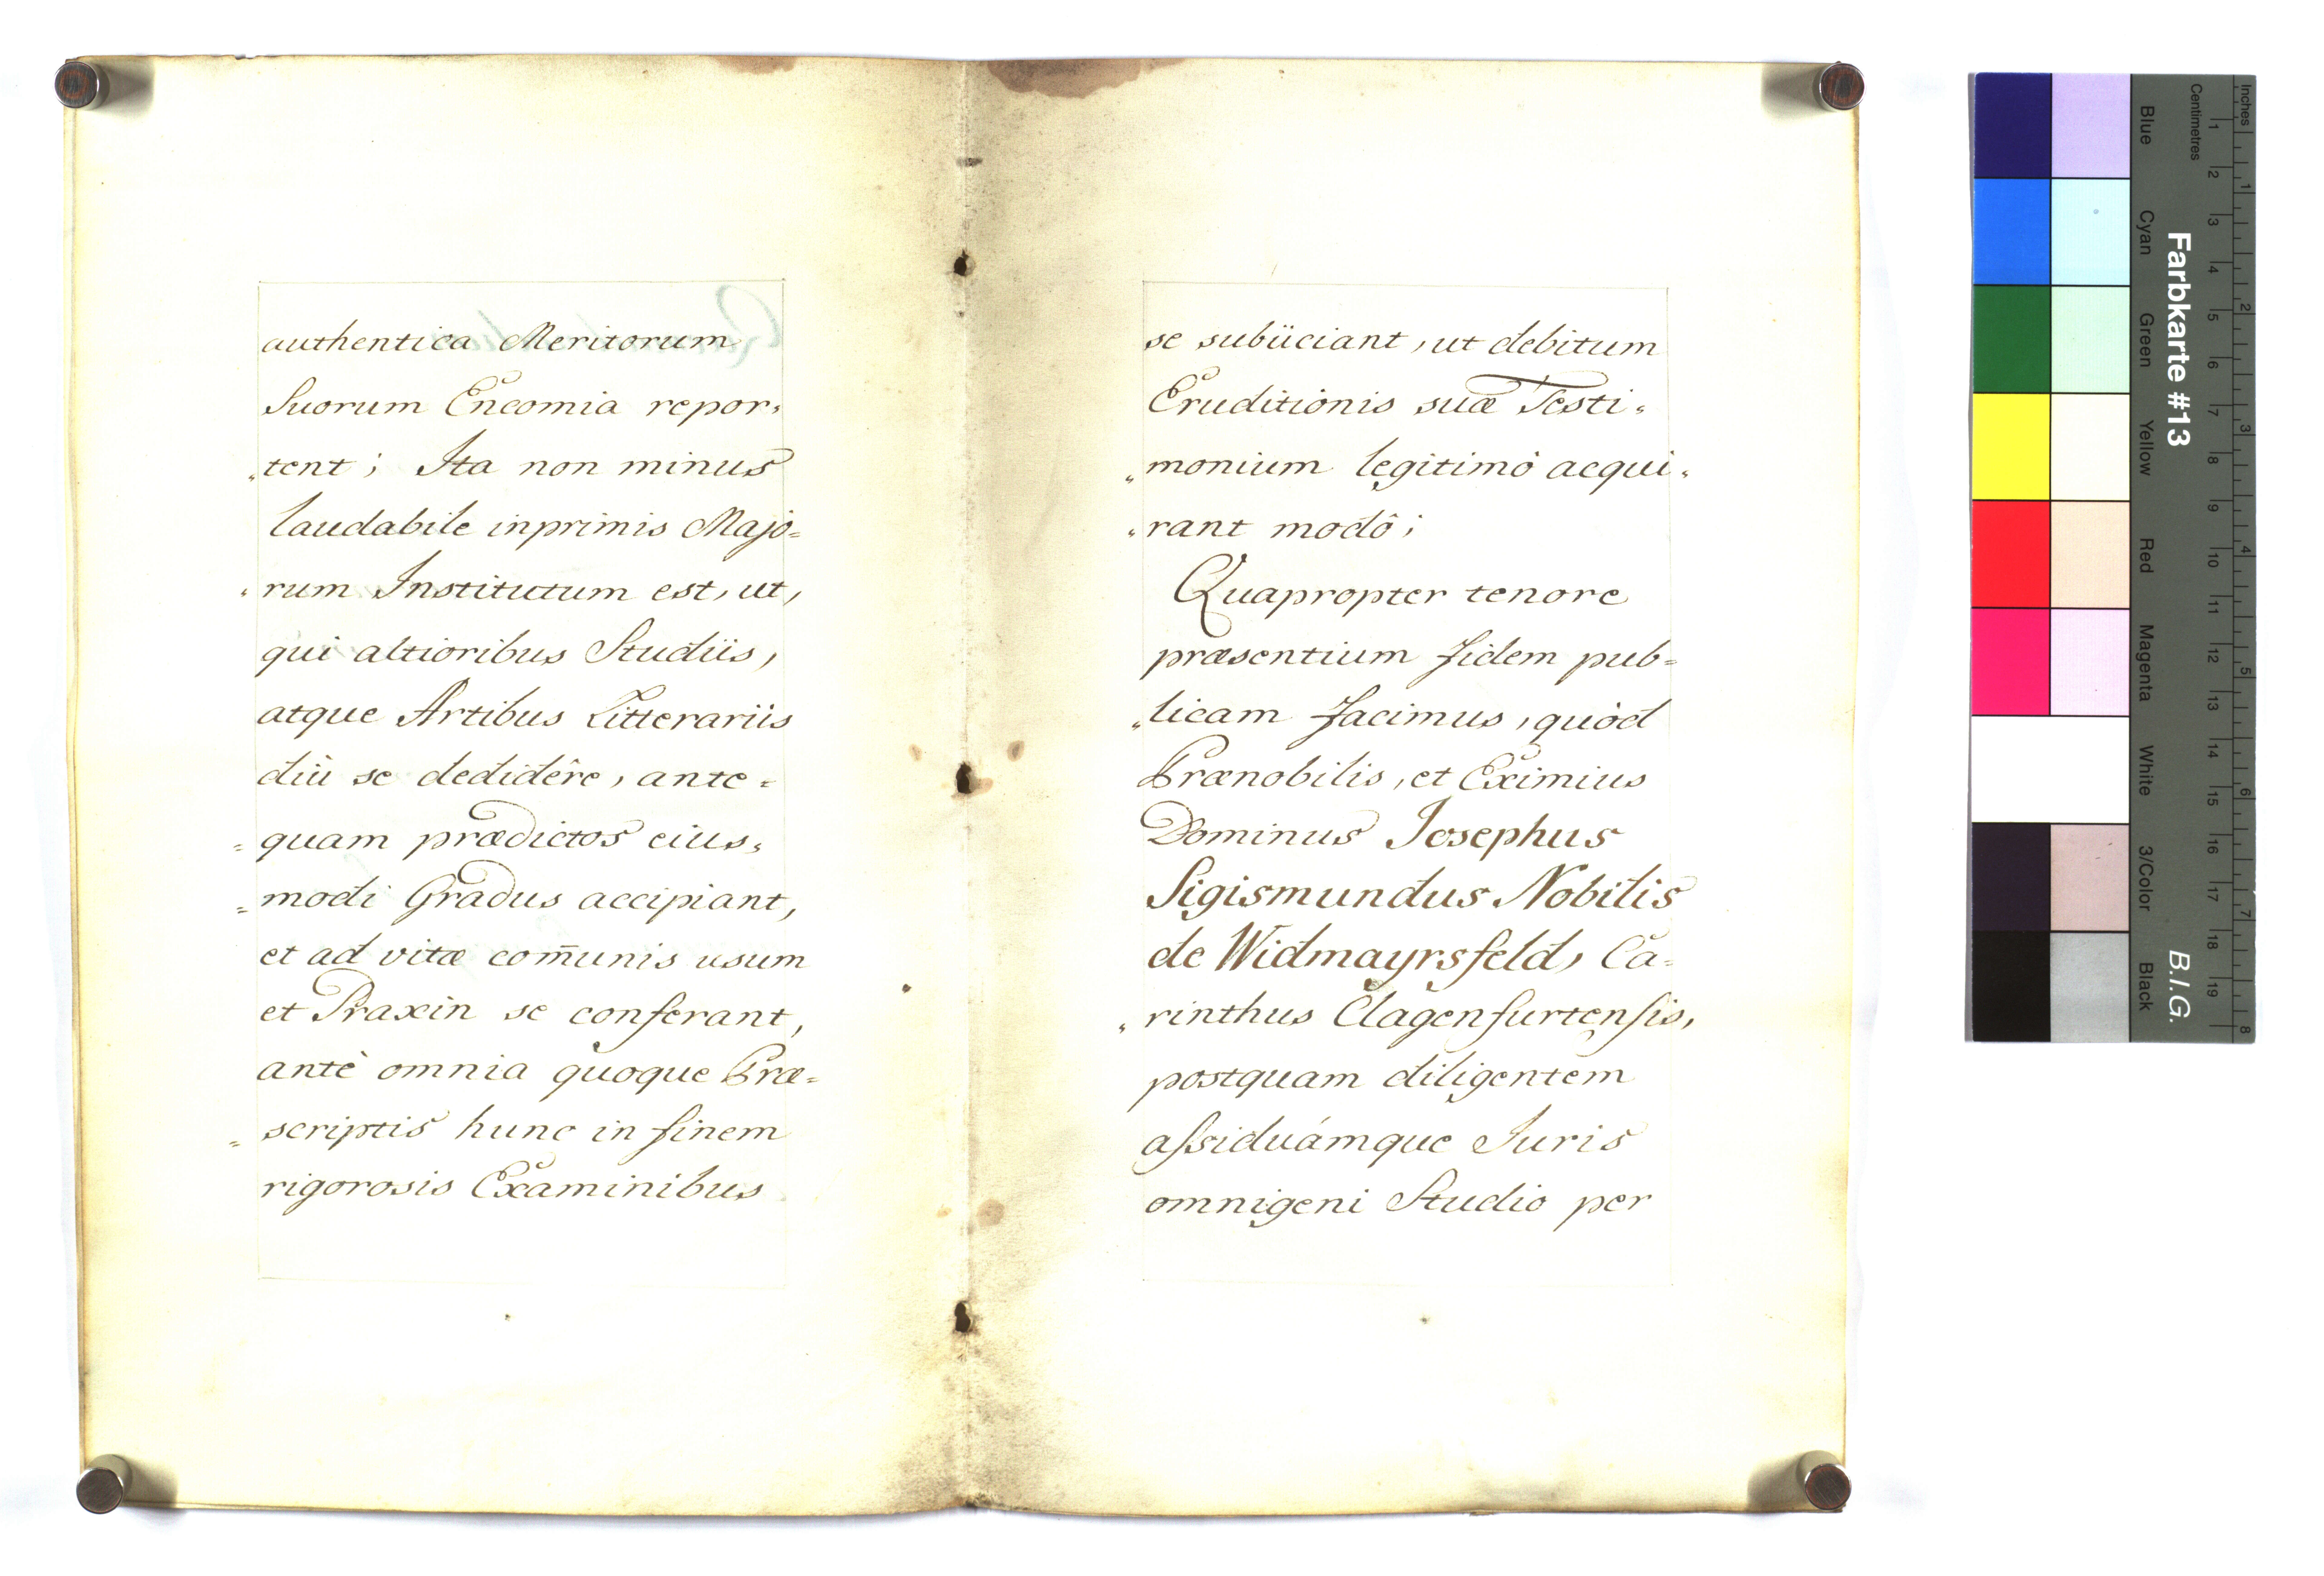 authentica Meritorum
Suorum Encomia repor„
„tent; Ita non minus
laudabile inprimis Majo=
„rum Institutum est, ut,
qui altioribus Studiis,
atque Artibus Litterariis
diù se dedidêre, ante=
=quam prædictos eius„
=modi Gradus accipiant,
et ad vitæ com̄unis usum
et Praxin se conferant,
antè omnia quoque Præ=
=scriptis hunc in finem
rigorosis Examinibus
se subiiciant, ut debitum
Eruditionis suæ Testi„
„monium legitimô acqui„
„rant modô;
Quapropter tenore
præsentium fidem pub=
„licam facimus, quòd
Prænobilis, et Eximius
Dominus Iosephus
Sigismundus Nobilis
de Widmayrsfeld, Ca=
„rinthus Clagenfurtenſis,
postquam diligentem
aſsiduámque Iuris
omnigeni Studio per
Inches
Centimetres
1 2 3 4 5 6 7 8 9 10 11 12 13 14 15 16 17 18 19
1 2 3 4 5 6 7 8
Farbkarte #13
B.I.G.
Blue
Cyan
Green
Yellow
Red
Magenta
White
3/Color
Black